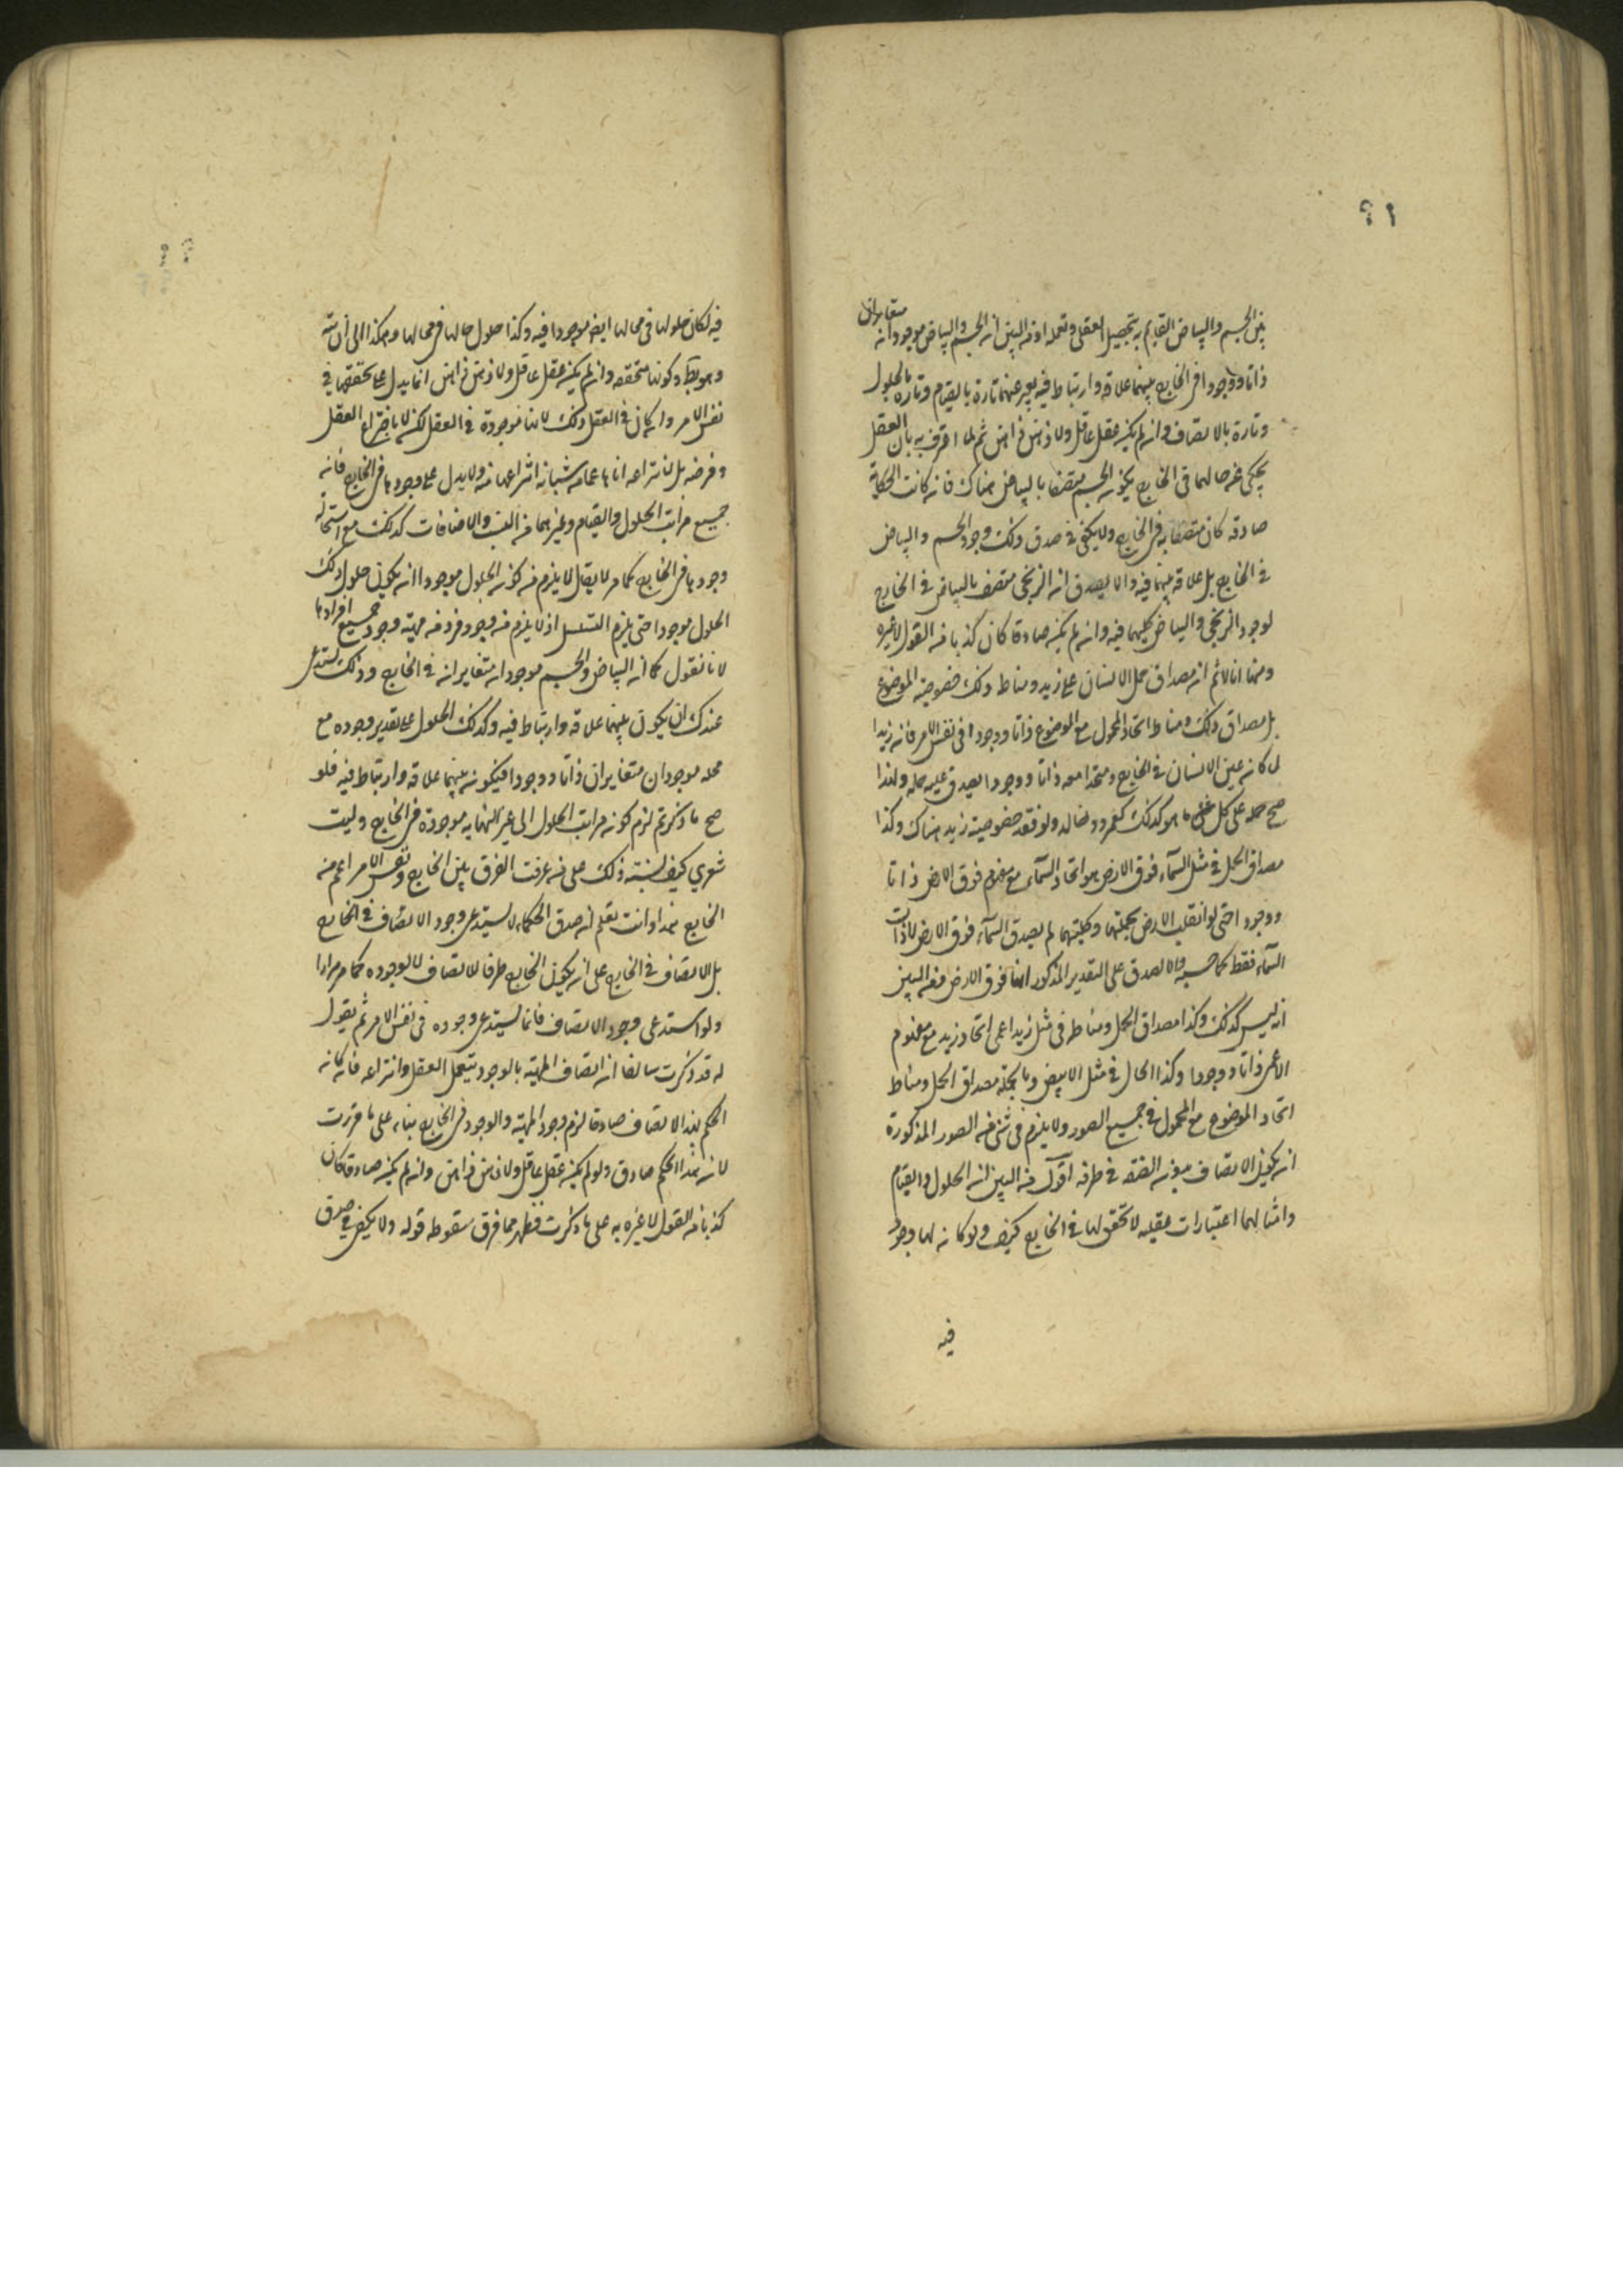 ٢١
بين الجسم والبياض القايم به بتحصيل العقل وتعمله اذ من البين ان الجسم والبياض موجودان متغايران
ذاتا ووجودا في الخارج بينهما علاقة وارتباط فيه يعبر عنهما تارة بالقيام وتارة بالحلول
وتارة بالاتصاف وان لم يكن عقل عاقل ولا ذهن ذاهن ثم لما اعترف به بان العقل
يحكي عن حالهما في الخارج بكون الجسم متصفا بالبياض هناك فان كانت الحكاية
صادقة كان متصفا به في الخارج ولا يكفي في صدق ذلك وجود الجسم والبياض
في الخارج بل علاقة بينهما فيه والا لصدق ان الزنجي متصف بالبياض في الخارج
لوجود الزنجي والبياض كليهما فيه وان لم يكن صادقا كان كذبا من القول لا غيره
ومنها انا لا نم ان مصداق حمل الانسان على زيد ومناط ذلك خصوصية الموضوع
بل مصداق ذلك ومناطه اتحاد المحمول مع الموضوع ذاتا ووجودا في نفس الامر فان زيدا
لما كان عين الانسان في الخارج ومتحدا معه ذاتا ووجودا يصدق عليه حمله ولهذا
صح حمله على كل ما هو كذلك كعمرو وخالد ولو فقد خصوصية زيد هناك وكذا
مصداق الحمل في مثل السماء فوق الارض هو اتحاد السماء مع مفهوم فوق الارض ذاتا
ووجودا حتى لو انقلب الارض بجملتها وكليتهما لم يصدق السماء فوق الارض لا ذات
السماء فقط كما حسبه والا لصدق على التقدير المذكور انها فوق الارض فمن البين
انه ليس كذلك وكذا مصداق الحمل ومناطه في مثل زيد اعمى اتحاد زيد مع مفهوم
الاعمى ذاتا ووجودا وكذا الحال في مثل الابيض وبالجملة مصداق الحمل ومناط
اتحاد الموضوع مع المحمول في جميع الصور ولا يلزم في شئ من الصور المذكورة
ان يكون الاتصاف بدون الصفة في طرفه اقول من البين ان الحلول والقيام
وامثالهما اعتبارات عقلية لا تحقق لها في الخارج كيف ولو كان لها وجود
فيه
٢٢
فيه لكان حلولها في محالها ايضا موجودا فيه وكذا حلول حالها في محالها وهكذا الى ان يتم
وهو بط وكونها متحققة وان لم يكن عقل عاقل ولا ذهن ذاهن انما يدل على تحققها في
نفس الامر وان كان في العقل وذلك لانها موجودة في العقل لكن لا باختراع العقل
وفرضه بل بانتزاعه اياها عما من شانه انتزاعها منه ولا يدل على وجودها في الخارج فانه
جميع مراتب الحلول والقيام وغيرهما من النسب والاضافات كذلك مع استحالة
وجودها في الخارج كما مر لا يقال لا يلزم من كون الحلول موجودا ان يكون حلول ذلك
الحلول موجودا حتى يلزم التسلسل اذ لا يلزم من وجود فرد من مهية وجود جميع افرادها
لانا نقول كما ان البياض والجسم موجودان متغايران في الخارج وذلك يستدعي
عندك ان يكون بينهما علاقة وارتباط فيه وكذلك الحلول على تقدير وجوده مع
محله موجودان متغايران ذاتا ووجودا فيكون بينهما علاقة وارتباط فيه فلو
صح ما ذكرتم لزم كون مراتب الحلول الى غير النهاية موجودة في الخارج وليت
شعري كيف يشتبه ذلك على من عرفت الفرق بين الخارج ونفس الامر اعم من
الخارج هذا وانت تعلم ان صدق الحكاية لا يستدعي وجود الاتصاف في الخارج
بل الاتصاف في الخارج على ان يكون الخارج ظرفا للاتصاف لا لوجوده كما مر مرارا
ولو استدعى وجود الاتصاف فانما يستدعي وجوده في نفس الامر ثم نقول
له قد ذكرت سالفا ان اتصاف المهية بالوجود بتعمل العقل وانتزاعه فان كان
الحكم بهذا الاتصاف صادقا لزم وجود المهية والوجود في الخارج بناء على ما قررت
لان هذا الحكم صادق ولو لم يكن عقل عاقل ولا ذهن ذاهن وان لم يكن صادقا كان
كذبا من القول لا غيره به على ما ذكرت فظهر مما فرق سقوط قوله ولا يكفي في صدق